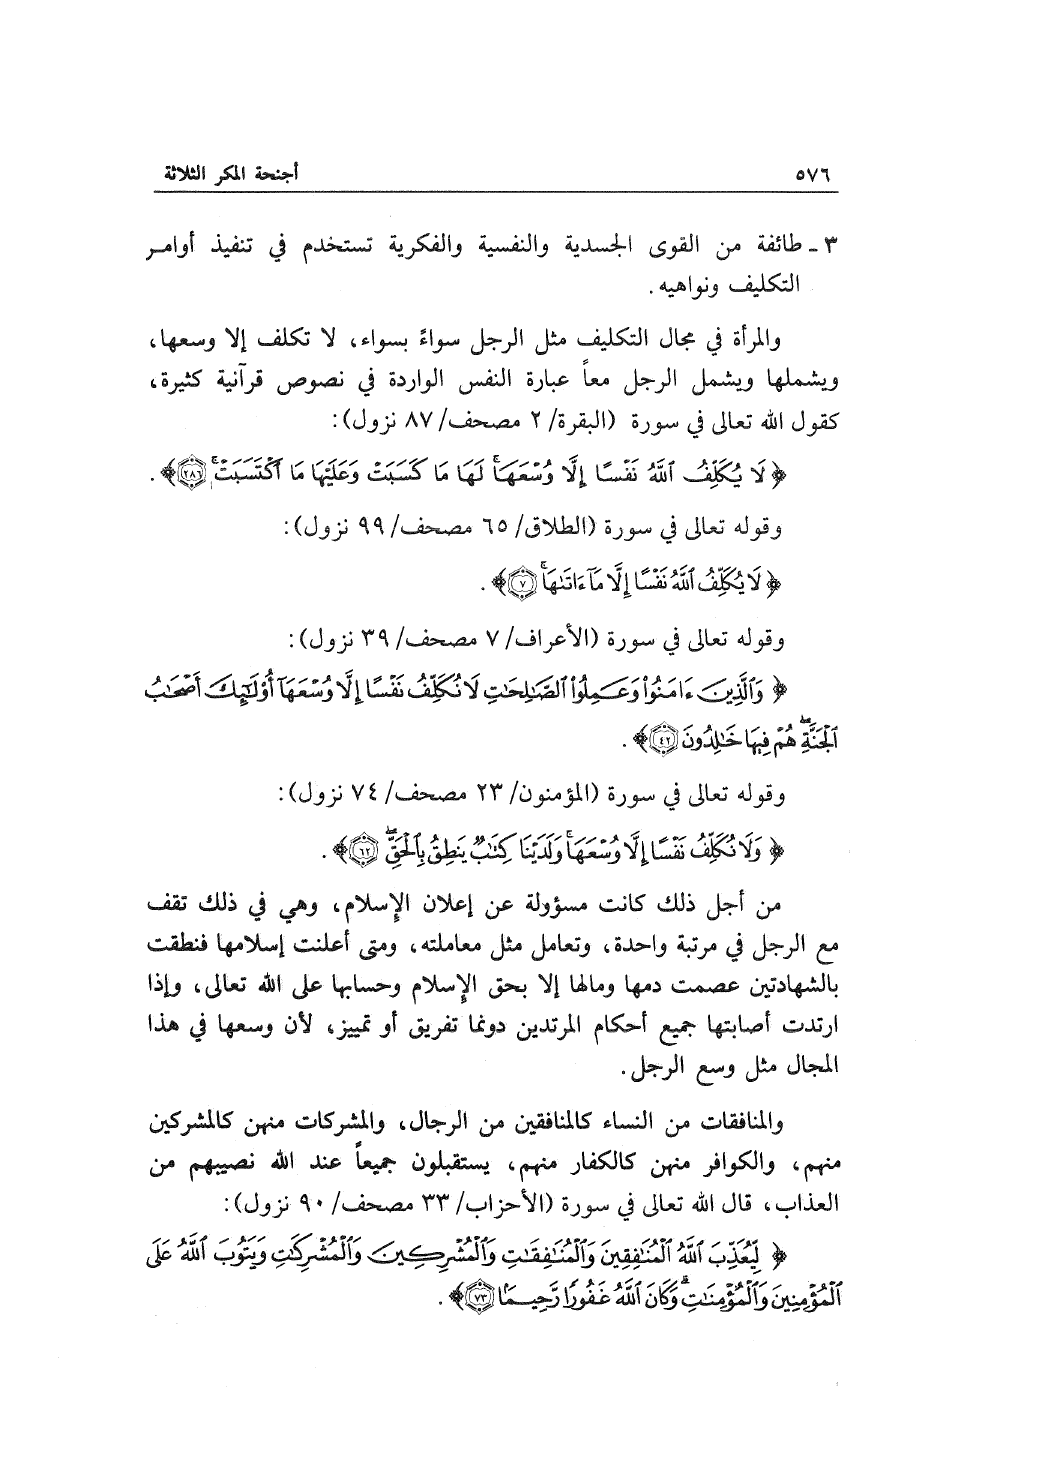 ٥٧٦ أجنحة المكر الثلاثة
٣ ـ طائفة من القوى الجسدية والنفسية والفكرية تستخدم في تنفيذ أوامر
التكليف ونواهيه .
والمرأة في مجال التكليف مثل الرجل سواءً بسواء، لا تكلف إلا وسعها،
ويشملها ويشمل الرجل معاً عبارة النفس الواردة في نصوص قرآنية كثيرة،
كقول الله تعالى في سورة (البقرة/ ٢ مصحف/ ٨٧ نزول):
﴿ لَا يُكَلِّفُ ٱللَّهُ نَفْسًا إِلَّا وُسْعَهَاۚ لَهَا مَا كَسَبَتْ وَعَلَيْهَا مَا ٱكْتَسَبَتْۚ ٢٨٦﴾ .
وقوله تعالى في سورة (الطلاق/ ٦٥ مصحف/ ٩٩ نزول):
﴿ لَا يُكَلِّفُ ٱللَّهُ نَفْسًا إِلَّا مَآ ءَاتَىٰهَاۚ ٧﴾ .
وقوله تعالى في سورة (الأعراف/ ٧ مصحف/ ٣٩ نزول):
﴿ وَٱلَّذِينَ ءَامَنُوا۟ وَعَمِلُوا۟ ٱلصَّٰلِحَٰتِ لَا نُكَلِّفُ نَفْسًا إِلَّا وُسْعَهَآ أُو۟لَٰٓئِكَ أَصْحَٰبُ
ٱلْجَنَّةِۖ هُمْ فِيهَا خَٰلِدُونَ ٤٢﴾ .
وقوله تعالى في سورة (المؤمنون/ ٢٣ مصحف/ ٧٤ نزول):
﴿ وَلَا نُكَلِّفُ نَفْسًا إِلَّا وُسْعَهَاۚ وَلَدَيْنَا كِتَٰبٌ يَنطِقُ بِٱلْحَقِّۖ ٦٢﴾ .
من أجل ذلك كانت مسؤولة عن إعلان الإسلام، وهي في ذلك تقف
مع الرجل في مرتبة واحدة، وتعامل مثل معاملته، ومتى أعلنت إسلامها فنطقت
بالشهادتين عصمت دمها ومالها إلا بحق الإسلام وحسابها على الله تعالى، وإذا
ارتدت أصابتها جميع أحكام المرتدين دونما تفريق أو تمييز، لأن وسعها في هذا
المجال مثل وسع الرجل.
والمنافقات من النساء كالمنافقين من الرجال، والمشركات منهن كالمشركين
منهم، والكوافر منهن كالكفار منهم، يستقبلون جميعاً عند الله نصيبهم من
العذاب، قال الله تعالى في سورة (الأحزاب/ ٣٣ مصحف/ ٩٠ نزول):
﴿ لِّيُعَذِّبَ ٱللَّهُ ٱلْمُنَٰفِقِينَ وَٱلْمُنَٰفِقَٰتِ وَٱلْمُشْرِكِينَ وَٱلْمُشْرِكَٰتِ وَيَتُوبَ ٱللَّهُ عَلَى
ٱلْمُؤْمِنِينَ وَٱلْمُؤْمِنَٰتِۗ وَكَانَ ٱللَّهُ غَفُورًا رَّحِيمًا ٧٣﴾ .